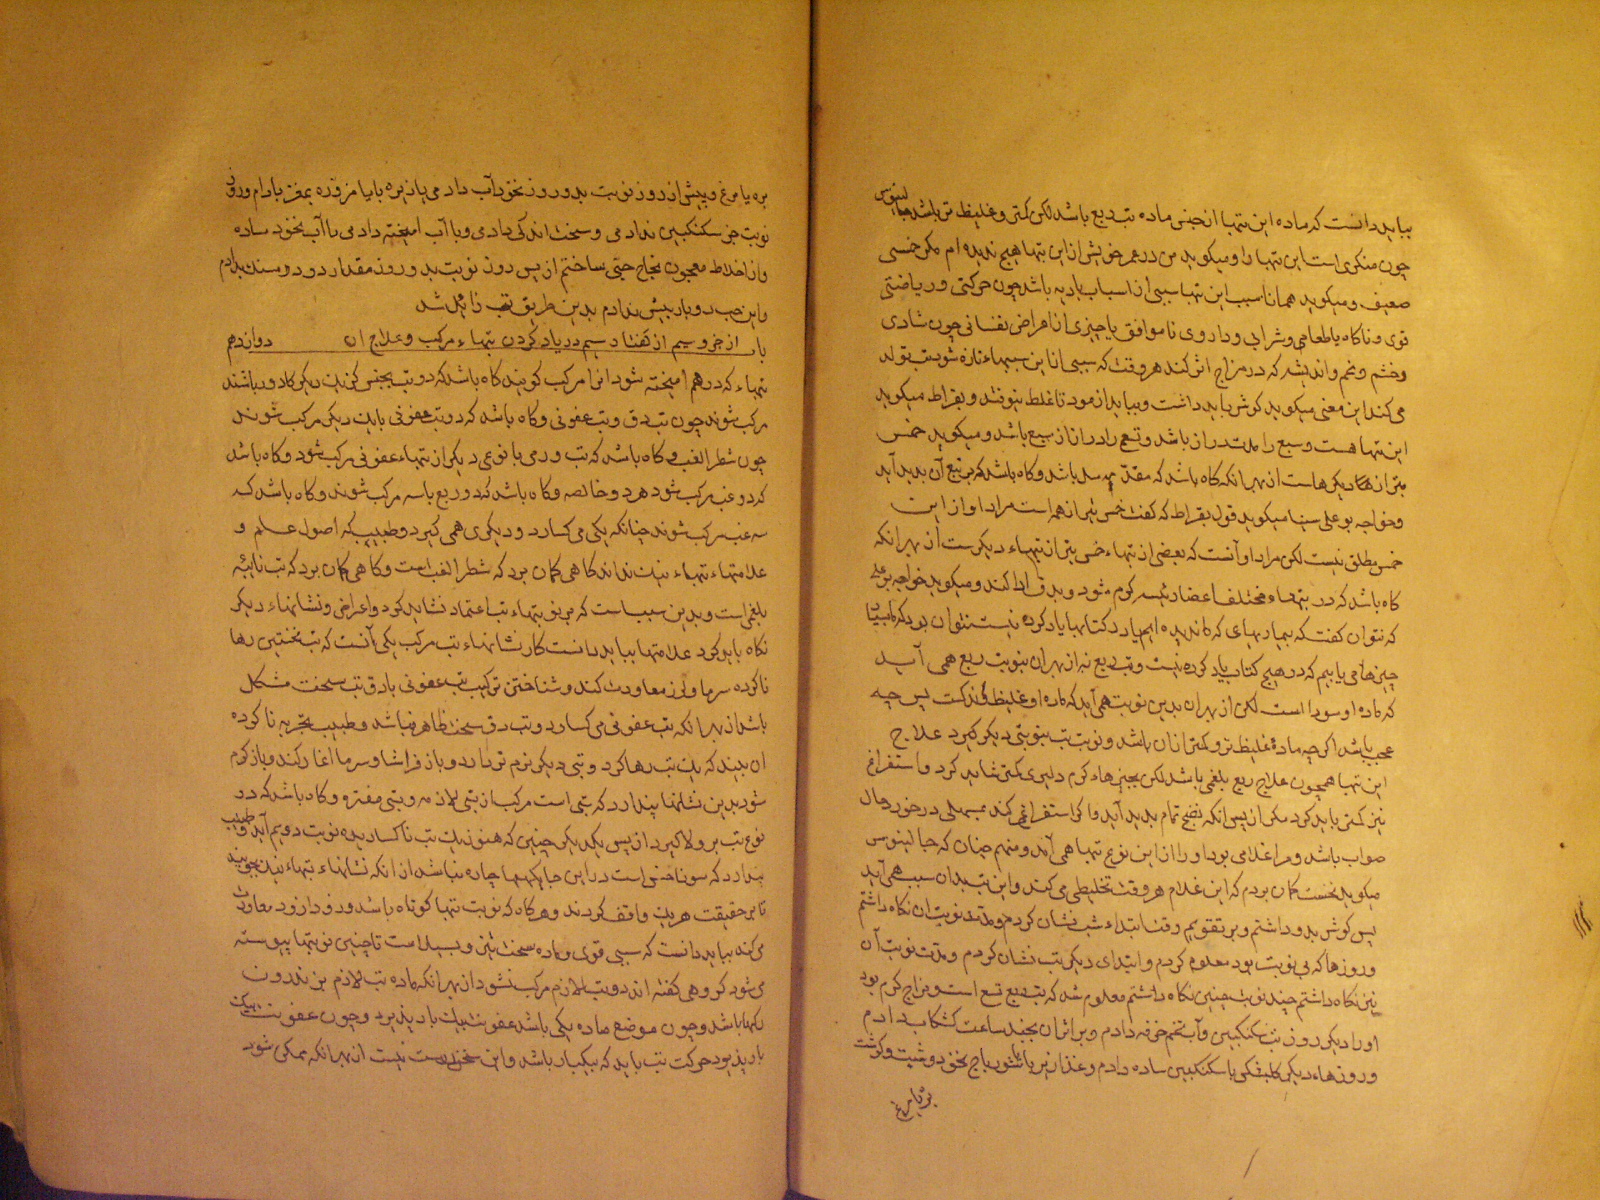 بباید دانست که ماده این تبها از جنس ماده تب ربع باشد لکن کمتر و غلیظ تر باشد جالینوس
چون منکری است این تبها را و میکوید من در عمر خویش از این تبها هیچ ندیده ام مکر خمسی
ضعیف و میکوید همانا سبب این تبها سببی از اسباب بادیه باشد چون حرکتی و ریاضتی
قوی و ناکاه یا طعامی و شرابی و داروی ناموافق یا چیزی از اعراض نفسانی چون شادی
و خشم و غم و اندیشه که در مزاج اثر کند هر وقت که سببی از این سببهاء تازه شود تب تولد
می کند این معنی میکوید کوش باید داشت و بباید ازمود تا غلط نیوفتد و بقراط میکوید
این تبها هست و سبع را مدت دراز باشد و تسع را درازتر از سبع باشد و میکوید خمس
بتر از همه دیکرهاست از بهر انکه کاه باشد که مقدمه سل باشد و کاه باشد که بر تبع آن پدید آید
و خواجه بو علی سینا میکوید قول بقراط که کفت خمس بتر از همه است مراد او از این
خمس مطلق نیست لکن مراد او آنست که بعضی از تبهاء خمس بتر از تبهاء دیکرست از بهر انکه
کاه باشد که در تبهاء مختلف اعضاء رئیسه کرم شود و بدق ادا کند و میکوید خواجه بو علی
که نتوان کفت که بیماریهای که ما ندیده ایم یا در کتابها یاد کرده نیست نتوان بود که ما بسیار
چیزها می یابیم که در هیچ کتاب یاد کرده نیست و تب ربع نه از بهر ان بنوبت ربع همی آید
که ماده او سودا است لکن از بهر ان بدین نوبت همی آید که ماده او غلیظ و اندک است پس چه
عجب باشد اکر چه ماده غلیظ تر و کمتر از ان باشد و نوبت تب بنوبتی دیکر کیرد علاج
این تبها همچون علاج ربع بلغمی باشد لکن بچیزهاء کرم دلیری کمتر شاید کرد و استفراغ
نیز کمتر باید کرد مکر از پس انکه نضج تمام پدید آید و اکر استفراغی کند بمسهلی در خور حال
صواب باشد و مرا غلامی بود او را از این نوع تبها همی آمد و منهم چنان که جالینوس
میکوید نخست کمان بردم که این غلام هر وقت تخلیطی می کند و این تب بدان سبب همی آید
پس کوش بدو داشتم و بر تقویم وقت ابتداء تب نشان کردم و مدت نوبت ان نکاه داشتم
و روزها که بی نوبت بود معلوم کردم و ابتدای دیکر تب نشان کردم و مدت نوبت آن
نیز نکاه داشتم چند نوبت چنین نکاه داشتم معلوم شد که تب ربع تسع است و مزاج کرم بود
او را دیکر روز تب سکنکبین و آب تخم خرفه دادم و بر اثر ان بچند ساعت کشکاب دادم
و روزهاء دیکر کلشکر با سکنکبین ساده دادم و غذا زیربا
بره یا مرغ
بره یا مرغ و پیش از روز نوبت بدو روز نخود آب داد می یا زیره با یا مزوره بمغز بادام و روز
نوبت جز سکنکبین نداد می و سخت اندکی داد می و با آب امیخته داد می یا آب نخود ساده
و از اخلاط معجون نجاح حبی ساختم از پس دوز نوبت بدو روز مقدار دو درم سنک بدادم
و این حب دو بار بیش ندادم بدین طریق تب زائل شد
باب دوازدهم از جزو سیم از کفتار سیم در یاد کردن تبهاء مرکب و علاج ان
تبهاء که در هم امیخته شود انرا مرکب کویند کاه باشد که دو تب بجنس کز یک دیکر دور باشند
مرکب شوند چون تب دق و تب عفونی و کاه باشد که دو تب عفونی با یک دیکر مرکب شوند
چون شطر الغب و کاه باشد که تب ورمی با نوعی دیکر از تبهاء عفونی مرکب شود و کاه باشد
که دو غب مرکب شود هر دو خالصه و کاه باشد که دو ربع یا سه مرکب شوند و کاه باشد که
سه غب مرکب شوند چنانکه یکی می کسارد و دیکری همی کیرد و طبیب که اصول علم و
علامتهاء تبهاء نیک نداند کاهی کمان برد که شطر الغب است و کاهی کمان برد که تب نائبه
بلغمی است و بدین سبب است که بر نوبتهاء تب اعتماد نشاید کرد و اعراض و نشانهاء دیکر
نکاه باید کرد علامتها بباید دانست کز نشانهاء تب مرکب یکی آنست که تب نخستین رها
ناکرده سرما و لرز معاودت کند و شناختن ترکیب تب عفونی با دق تب سخت مشکل
باشد از بهر انکه تب عفونی می کسارد و تب دق سخت ظاهر نباشد و طبیب تجربه ناکرده
ان بیند که یک تب رها کرد و تبی دیکر نرم تر دارد و باز فراشا و سرما اغاز کند و باز کرم
شود بدین نشانها پندارد که تبی است مرکب از تبی لازمه و تبی مفتره و کاه باشد که دو
نوع تب بر ولا کیرد از پس یکدیکر چنین که هنوز یک تب ناکساریده نوبت دویم آید و طبیب
پندارد که سوناخس است در این جایکهها چاره نباشد از انکه نشانهاء تبهاء نیک بجویند
تا بر حقیقت هر یک واقف کردند و هر کاه که نوبت تبها کوتاه باشد و زود ازود معاودت
می کند بباید دانست که سببی قوی و ماده سخت تیز و بسیار است تا چنین نوبتها پیوسته
می شود کروهی کفته اند دو تب لازم مرکب نشود از بهر انکه ماده تب لازم بز اندرون
رکها باشد و چون موضع ماده یکی باشد عفونت یک بار پذیرد و چون عفونت بیک
بار پذیرد حرکت تب باید که بیکبار باشد و این سخن درست نیست از بهر انکه ممکن شود